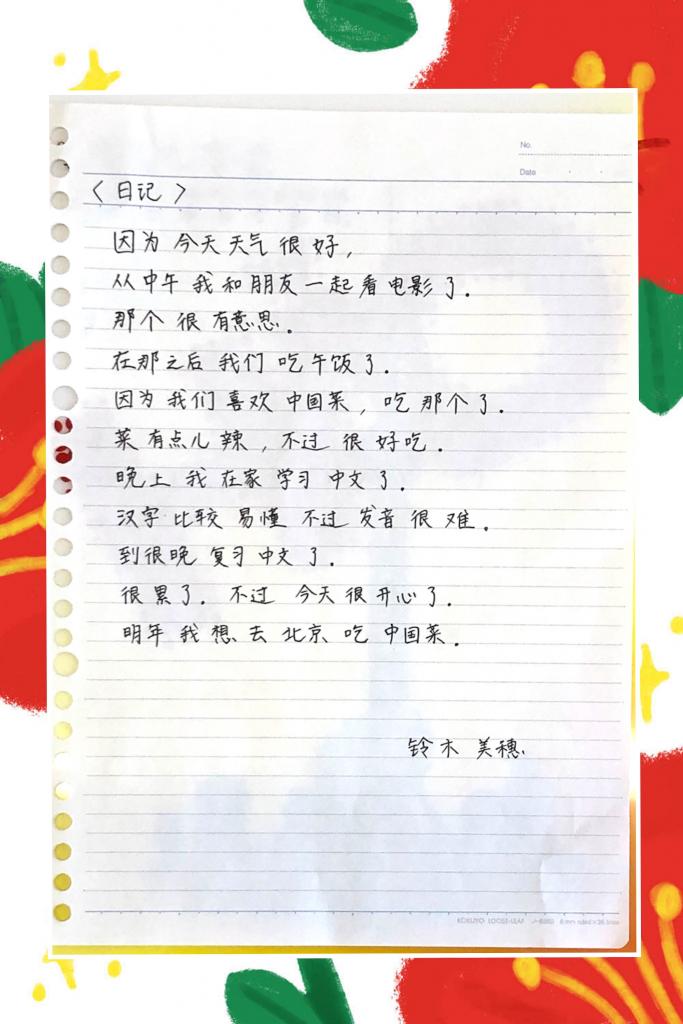 No.
Date
〈 日记 〉
因为 今天 天气 很 好,
从中午 我 和 朋友 一起 看 电影 了.
那个 很 有意思.
在那之后 我们 吃 午饭 了.
因为 我们 喜欢 中国菜, 吃 那个 了.
菜 有点儿 辣, 不过 很 好吃.
晚上 我 在家 学习 中文 了.
汉字 比较 易懂 不过 发音 很 难.
到很晚 复习 中文 了.
很 累了. 不过 今天 很 开心 了.
明年 我 想 去 北京 吃 中国菜.
铃木 美穗
KOKUYO LOOSE-LEAF